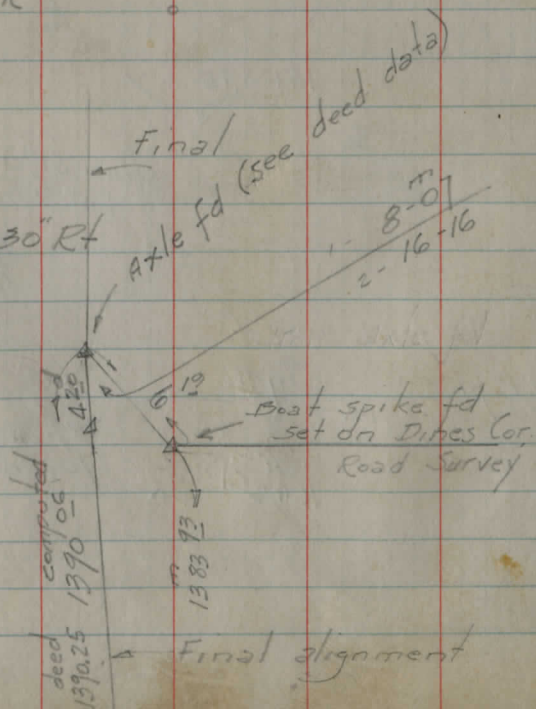 Final
Axle fd (see deed data)
30" Rt
8-0
16-16
6 19
4 20
Boat spike fd
set on Dines Cor.
Road Survey
computed
1390 06
deed
1390.25
m
1383 93
Final alignment